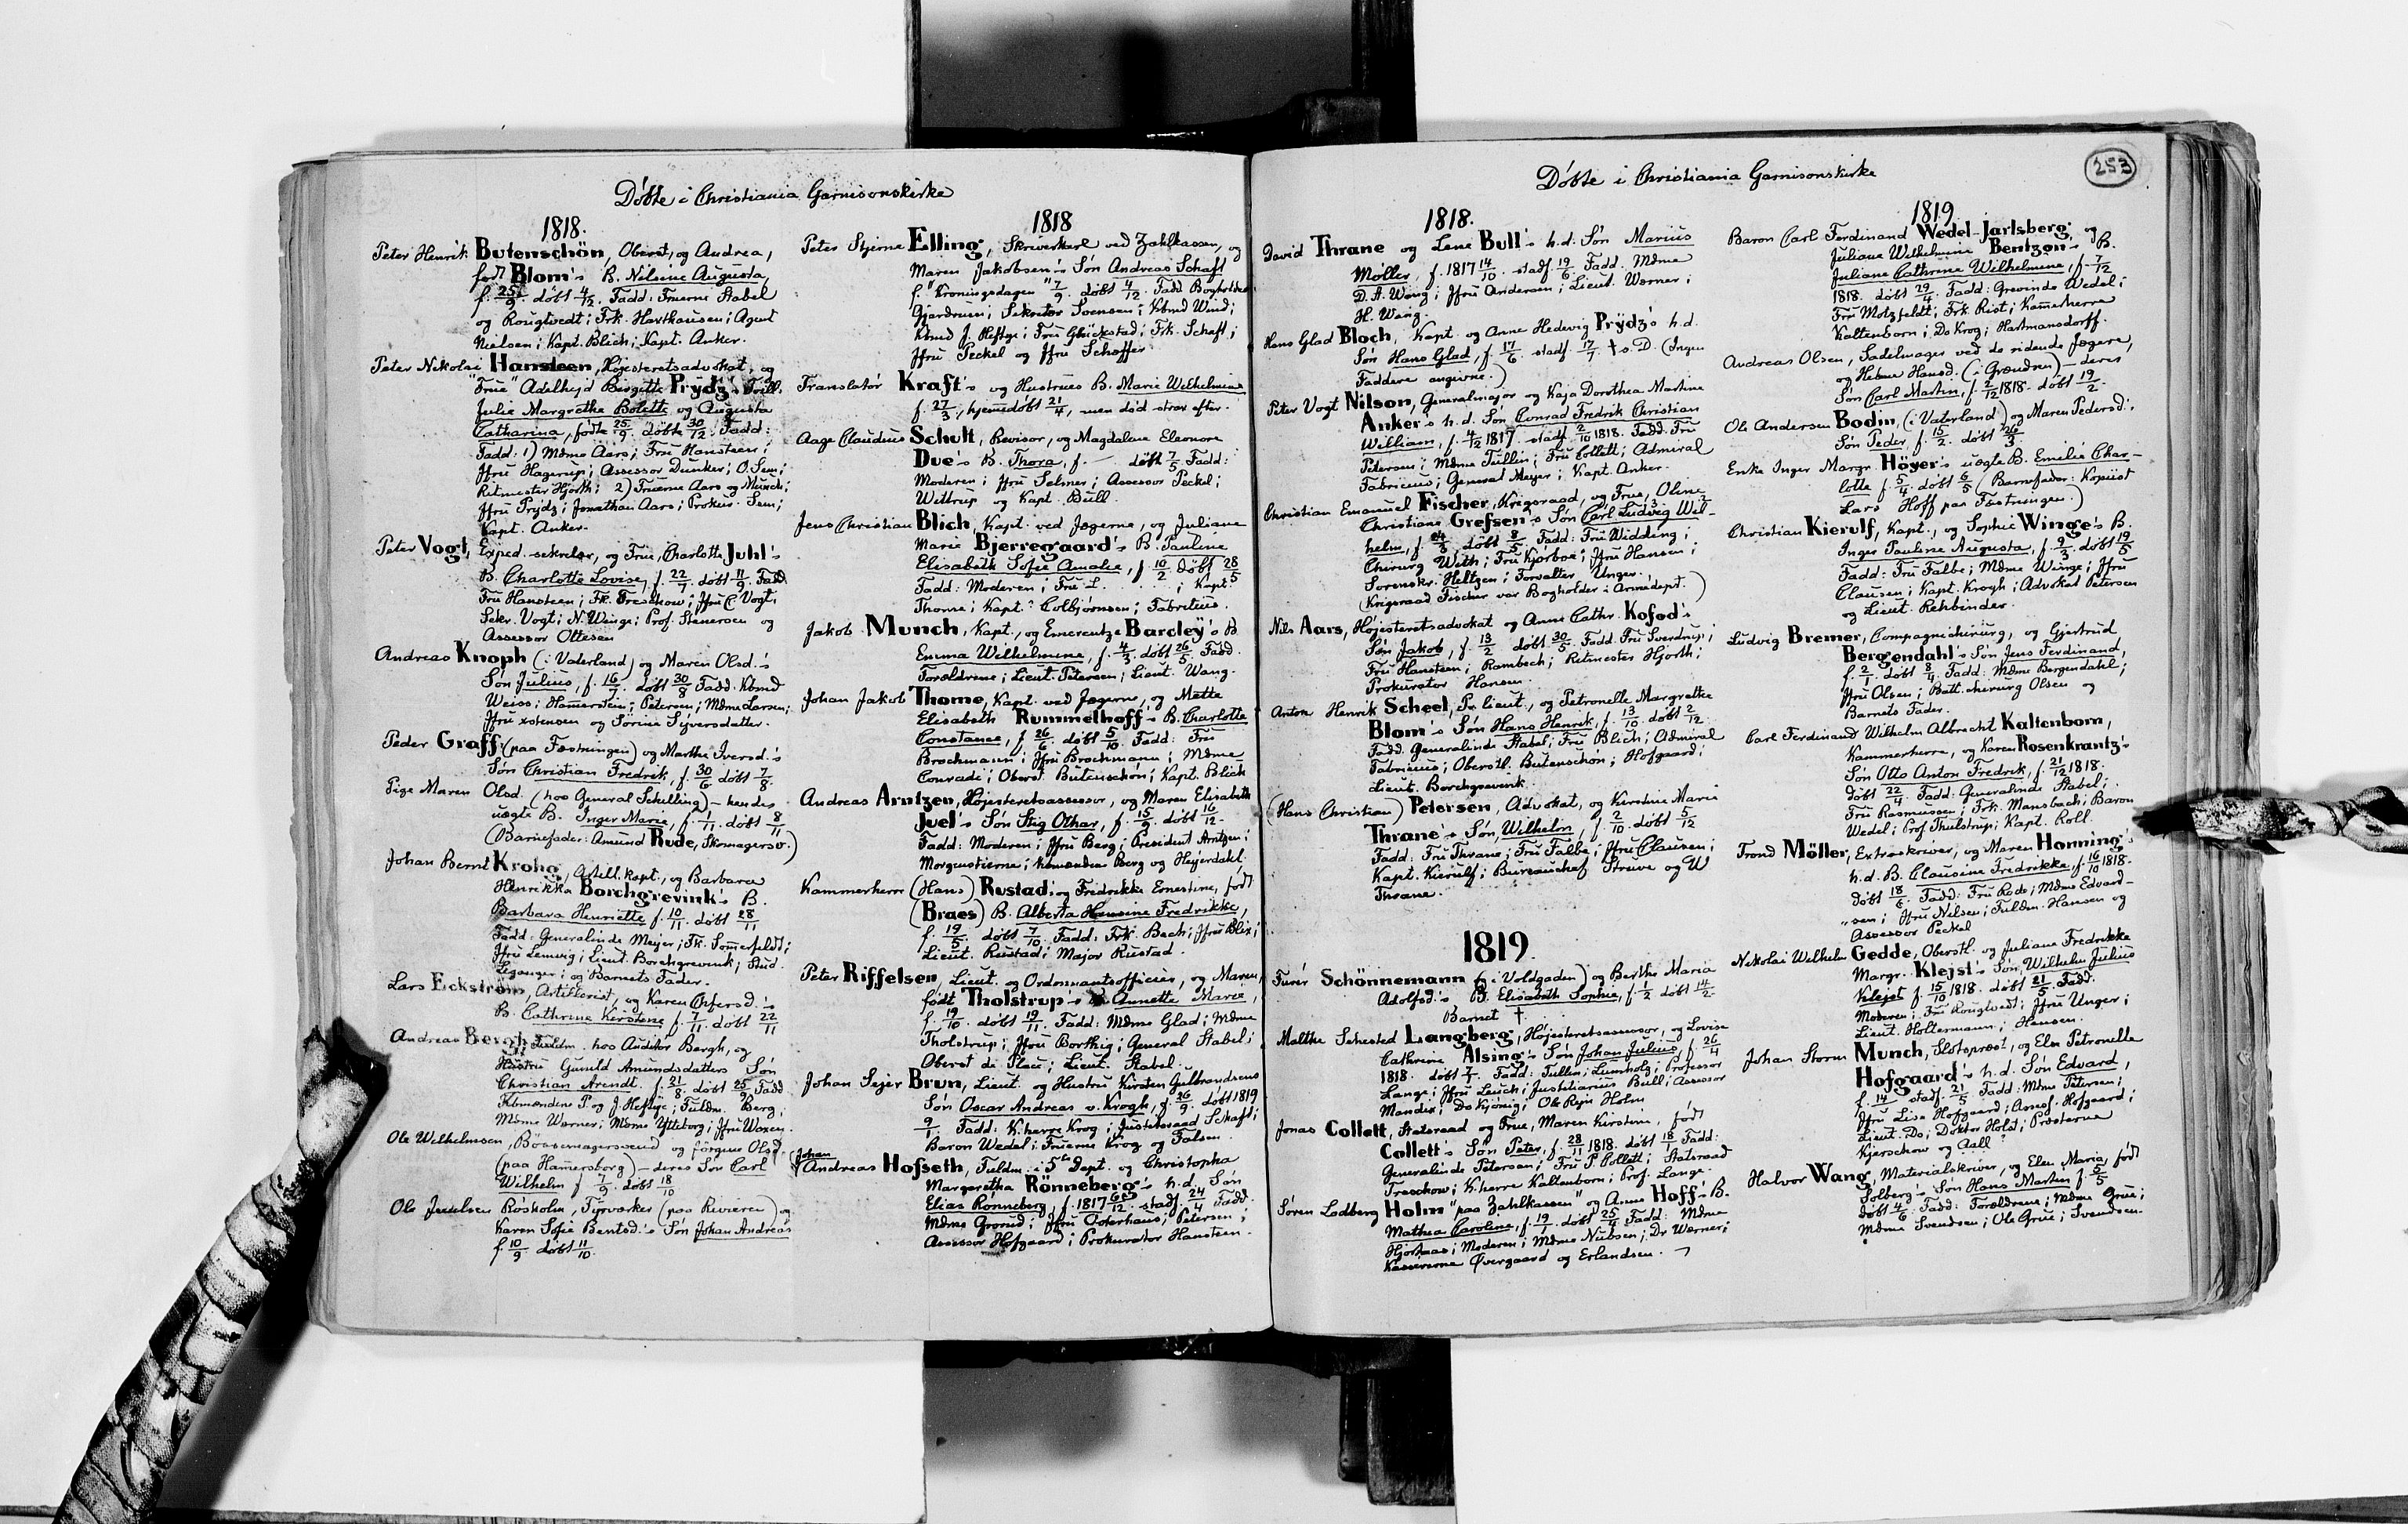 Döbte i Christiania Garnisonskirke
1818.
Peter Henrik Butenschön, Oberst, og Andrea,
født Blom's B. Nilsine Augusta,
f. 25/9. döbt 4/12. Fadd: Fruerne Stabel
og Rougtvedt; Frk. Haxthausen; Agent
Nielsen; Kapt. Blich; Kapt. Anker.
Peter Nikolai Hansteen, Höjesteretsadvokat, og
"Frue" Adelhejd Birgitte Prydz's Trill.
Julie Margrethe Bolette og Augusta
Catharina, födte 25/9. döbte 30/12. Fadd:
Fadd: 1) Mdme Aars; Fru Hansteen;
Jfru Hagerup; Assessor Dunker; O. Sem;
Ritmester Hjorth; 2) Fruerne Aars og Munch;
Jfru Prydz; Jonathan Aars; Prokur. Sem;
Kapt. Anker.
Peter Vogt, Exped. sekretær, og Frue, Charlotte Juhl's
B. Charlotte Lovise, f. 22/7. döbt 11/9. Fadd
Fru Hansteen; Frk. Treschow; Jfru C Vogt;
Sekr. Vogt; N. Winge; Prof. Stenersen og
Assessor Ottesen
Andreas Knoph (i Vaterland) og Maren Olsd.'s
Sön Julius, f. 16/7. döbt 30/8 Fadd. Kbmd
Weiss; Hamerstein; Petersen; Mdme Larsen;
Jfru Astensen og Sörine Syversdatter.
Peder Graff (paa Fæstningen) og Marthe Iversd.'s
Sön Christian Fredrik, f. 30/6 döbt 7/8.
Pige Maren Olsd. (hos General Schilling) – hendes
uægte B. Inger Marie, f. 1/11. döbt 8/11
(Barnefader: Amund Rude, Skomagersv.)
Johan Bernt Krohg, Artill. kapt., og Barbara
Henrikka Borchgrevink's B.
Barbara Henriette f. 10/11. döbt 28/11
Fadd: Generalinde Meijer; Frk. Sommerfeldt;
Jfru Lemvig; Lieut. Borchgrevink; Stud.
Leganger; og Barnets Fader.
Lars Eckström, Artillerist, og Karen Chfersd.'s
B. Cathrine Kirstine f. 7/11. döbt 22/11
Andreas Bergh, Fuldm. hos Auditör Bergh, og
Hustru Gunild Amundsdatters Sön
Christian Arendt. f. 21/8 döbt 25/9 Fadd
Kbmændene P. og J. Heftye; Fuldm. Berg;
Mdme Werner; Mdme Ytteborg; Jfru Woxen.
Ole Wilhelmsen, Bössemagersvend og Jörgine Olsd.
(paa Hamersborg) – deres Sön Carl
Wilhelm f 7/9. döbt 18/10
Ole Juelsen Rösholm, Fyrværker (paa Rivieren) og
Karen Sofie Bentsd.'s Sön Johan Andreas
f. 10/9 döbt 11/10.
1818
Peter Stjerne Elling, Skriverkarl ved Zahlkassen, og
Maren Jakobsen's Sön Andreas Schaft
f. "Kroningsdagen" 7/9. döbt 4/12. Fadd Bogholder
Gjerdrum; Sekretær Svensen; Kbmd Wind;
Kbmd J. Heftye; Fru Glückstad; Frk. Schaft;
Jfru Peckel og Jfru Schaffer
Translatör Kraft's og Hustrues B. Marie Wilhelmine
f. 27/3, hjemedöbt 21/4, men död strax efter.
Aage Claudius Schult, Revisor, og Magdalene Eleonore
Due's B. Thora, f. — döbt 7/5 Fadd:
Moderen; Jfru Selmer; Assessor Peckel;
Wittrup og Kapt. Bull.
Jens Christian Blich, Kapt. ved Jægerne, og Juliane
Marie Bjerregaard's B. Pauline
Elisabeth Sofie Amalie, f. 10/2 döbt 28/5
Fadd: Moderen; Fru L . . . ; Kapt.
Thorne; Kapt. Colbjörnsen; Fabritius.
Jakob Munch, Kapt., og Emerentze Barcley's B
Emma Wilhelmine, f. 4/3. döbt 26/5. Fadd.
Forældrene; Lieut. Petersen; Lieut. Wang.
Johan Jakob Thorne, Kapt. ved Jægerne, og Mette
Elisabeth Rummelhoff's B. Charlotte
Constance, f 26/6. döbt 5/10. Fadd: Fru
Brochmann; Jfru Brochmann; Mdme
Conradi; Oberst. Butenschön; Kapt. Blich
Andreas Arntzen, Höjesteretsassessor, og Maren Elisabeth
Juel's Sön Stig Othar, f. 15/9. döbt 16/12.
Fadd: Moderen; Jfru Berg; President Arntzen;
Morgenstierne; Kbmændene Berg og Heyerdahl.
Kammerherre (Hans) Rustad og Fredrikke Ernestine, född
(Braes) B. Alberta Hansine Fredrikke,
f. 19/5. döbt 7/10. Fadd: Frk. Bech; Jfru Blix;
Lieut. Rustad; Major Rustad.
Peter Riffelsen, Lieut. og Ordonnantsofficier, og Maren,
født Tholstrup's B Annette Marie,
f. 19/10. döbt 19/11. Fadd: Mdme Glad; Mdme
Tholstrup; Jfru Borthig; General Stabel;
Oberst de Place; Lieut. Stabel.
Johan Sejer Brun, Lieut. og Hustru Kirsten Gulbrandsens
Sön Oscar Andreas v. Krogh, f. 26/9. döbt 1819
9/1. Fadd: K.herre Krog; Justetsraad Schaft;
Baron Wedel; Fruerne Krog og Falsen.
(Johan
Andreas Hofseth, Fuldm. i 5te Dept. og Christopha
Margaretha Rönneberg's h. d. Sön
Elias Rönneberg f. 1817 6/12. stadf. 24/4 Fadd.
Mdme Grorud; Jfru Osterhaus; Petersen;
Assessor Hofgaard; Prokurator Hansteen.
Döbte i Christiania Garnisonskirke
253
1818.
David Thrane og Lene Bull's h. d. Sön Marius
Möller, f. 1817 14/10. stadf. 19/6. Fadd. Mdme
D. A. Wang; Jfru Andersen; Lieut. Werner;
H. Wang.
Hans Glad Bloch, Kapt. og Anne Hedevig Prydz's h. d.
Sön Hans Glad, f. 17/6. stadf. 17/7. † s. D. (Ingen
Faddere angivne.)
Peter Vogt Nilson, Generalmajor og Kaja Dorothea Martine
Anker's h. d. Sön Conrad Fredrik Christian
William, f. 4/12 1817. stadf. 2/10 1818. Fadd. Fru
Petersen; Mdme Tullin; Fru Collett; Admiral
Fabricius; General Meyer; Kapt. Anker.
Christian Emanuel Fischer, Krigsraad, og Frue, Oline
Christiane Grefsen's Sön Carl Ludvig Wil-
helm, f. 24/3. döbt 8/5. Fadd: Fru Widding;
Chirurg With; Fru Kjerboe; Jfru Hansen;
Sorenskr. Heltzen; Forvalter Unger.
(Krigsraad Fischer var Bogholder i Armédept.)
Nils Aars, Höjesteretsadvokat og Anne Cathr. Kofod's
Sön Jakob, f. 13/2 döbt 30/5. Fadd. Fru Sverdrup;
Fru Hansteen; Rambech; Ritmester Hjorth;
Prokurator Hansen.
Anton Henrik Scheel, Pr. lieut., og Petronelle Margrethe
Blom's Sön Hans Henrik, f. 13/10. döbt 2/12
Fadd. Generalinde Stabel; Fru Blich; Admiral
Fabricius; Oberstl. Butenschön; Hofgaard;
Lieut. Borchgrevink.
(Hans Christian) Petersen, Advokat, og Kirstine Marie
Thrane's Sön, Wilhelm, f 2/10. döbt 5/12
Fadd: Fru Thrane; Fru Falbe; Jfru Clausen;
Kapt. Kierulf; Bureauchef Streuve og W
Thrane.
1819.
Furér Schönnemann (i Voldgaden) og Berthe Maria
Adolfsd.'s B. Elisabeth Sophie, f. 1/2 döbt 14/2.
Barnet †.
Malthe Sehested Langberg, Höjesteretsassessor, og Lovise
Cathrine Alsing's Sön Johan Julius, f. 26/4
1818. döbt 7/1. Fadd: Tullin; Lumholz; Professor
Lange; Jfru Leuch; Justitiarius Bull; Assessor
Mandix; Do Kjönig; Ole Rejn Holm
Jonas Collett, Statsraad og Frue, Maren Kirstine, född
Collett's Sön Peter, f. 28/11 1818. döbt 18/1 Fadd:
Generalinde Petersen; Fru P. Collett; Statsraad
Treschow; K.herre Kaltenborn; Prof. Lange.
Sören Lodberg Holm "paa Zahlkassen" og Anne Hoff's B.
Mathea Caroline, f. 19/1. döbt 25/4 Fadd: Mdme
Hjortnæs; Moderen; Mdme Nielsen; Dr Werner;
Kassererne Övergaard og Erlandsen.
1819.
Baron Carl Ferdinand Wedel-Jarlsberg, og
Juliane Wilhelmine Bentzon's B.
Juliane Cathrine Wilhelmine, f. 7/12
1818. döbt 29/4. Fadd: Grevinde Wedel;
Fru Motzfeldt; Frk. Rist; Kamerherre
Kaltenborn; Do Krog; Hartmansdorff.
Andreas Olsen, Sadelmager ved de ridende Jægere,
og Helene Hansd. (i Grændsen) – deres
Sön Carl Martin, f. 2/12 1818. döbt 19/2.
Ole Andersen Bodin, (i Vaterland) og Maren Pedersd.'s
Sön Peder, f. 15/2. döbt 26/3.
Enke Inger Margr. Höyer's uægte B. Emilie Char-
lotte f. 5/4. döbt 6/5 (Barnefader: Kopiist
Lars Hoff paa Fæstningen.)
Christian Kierulf, Kapt., og Sophie Winge's B.
Inger Pauline Augusta, f. 9/3. döbt 19/5
Fadd: Fru Falbe; Mdme Winge; Jfru
Clausen; Kapt. Krogh; Advokat Petersen
og Lieut. Rehbinder.
Ludvig Bremer, Compagnichirurg, og Gjertrud
Bergendahl's Sön Jens Ferdinand,
f. 2/1. döbt 8/4. Fadd: Mdme Bergendahl;
Jfru Olsen; Batt. chirurg Olsen og
Barnets Fader.
Carl Ferdinand Wilhelm Albrecht Kaltenborn,
Kammerherre, og Karen Rosenkrantz's
Sön Otto Anton Fredrik, f. 21/12 1818.
döbt 22/4. Fadd: Generalinde Stabel;
Fru Rasmussen; Frk. Mansbach; Baron
Wedel; Prof Thulstrup; Kapt. Roll.
Trond Möller, Extraskriver, og Maren Honning's
h. d. B. Clausine Fredrikke, f. 16/10 1818.
döbt 18/6. Fadd: Fru Rode; Mdme Edvard-
"sen; Jfru Nilsen; Fuldm. Hansen og
Assessor Peckel
Nikolai Wilhelm Gedde, Oberstl. og Juliane Fredrikke
Margr. Klejst's Sön, Wilhelm Julius
Klejst f. 15/10 1818. döbt 21/5. Fadd.
Moderen; Fru Rougtvedt; Jfru Unger;
Lieut. Holtermann; Hansen.
Johan Storm Munch, Slotspræst, og Else Petronelle
Hofgaard's h. d. Sön Edvard,
f. 14/— stadf. 21/5 Fadd. Mdme Petersen;
Jfru Lise Hofgaard; Assess. Hofgaard;
Lieut. Do; Doktor Holst; Præsterne
Kjerschow og Aall?
Halvor Wang, Materialskriver, og Elen Maria, född
Solberg's Sön Hans Morten f. 5/5
döbt 4/6. Fadd: Forældrene; Mdme Grue;
Mdme Svendsen; Ole Grue; Svendsen.